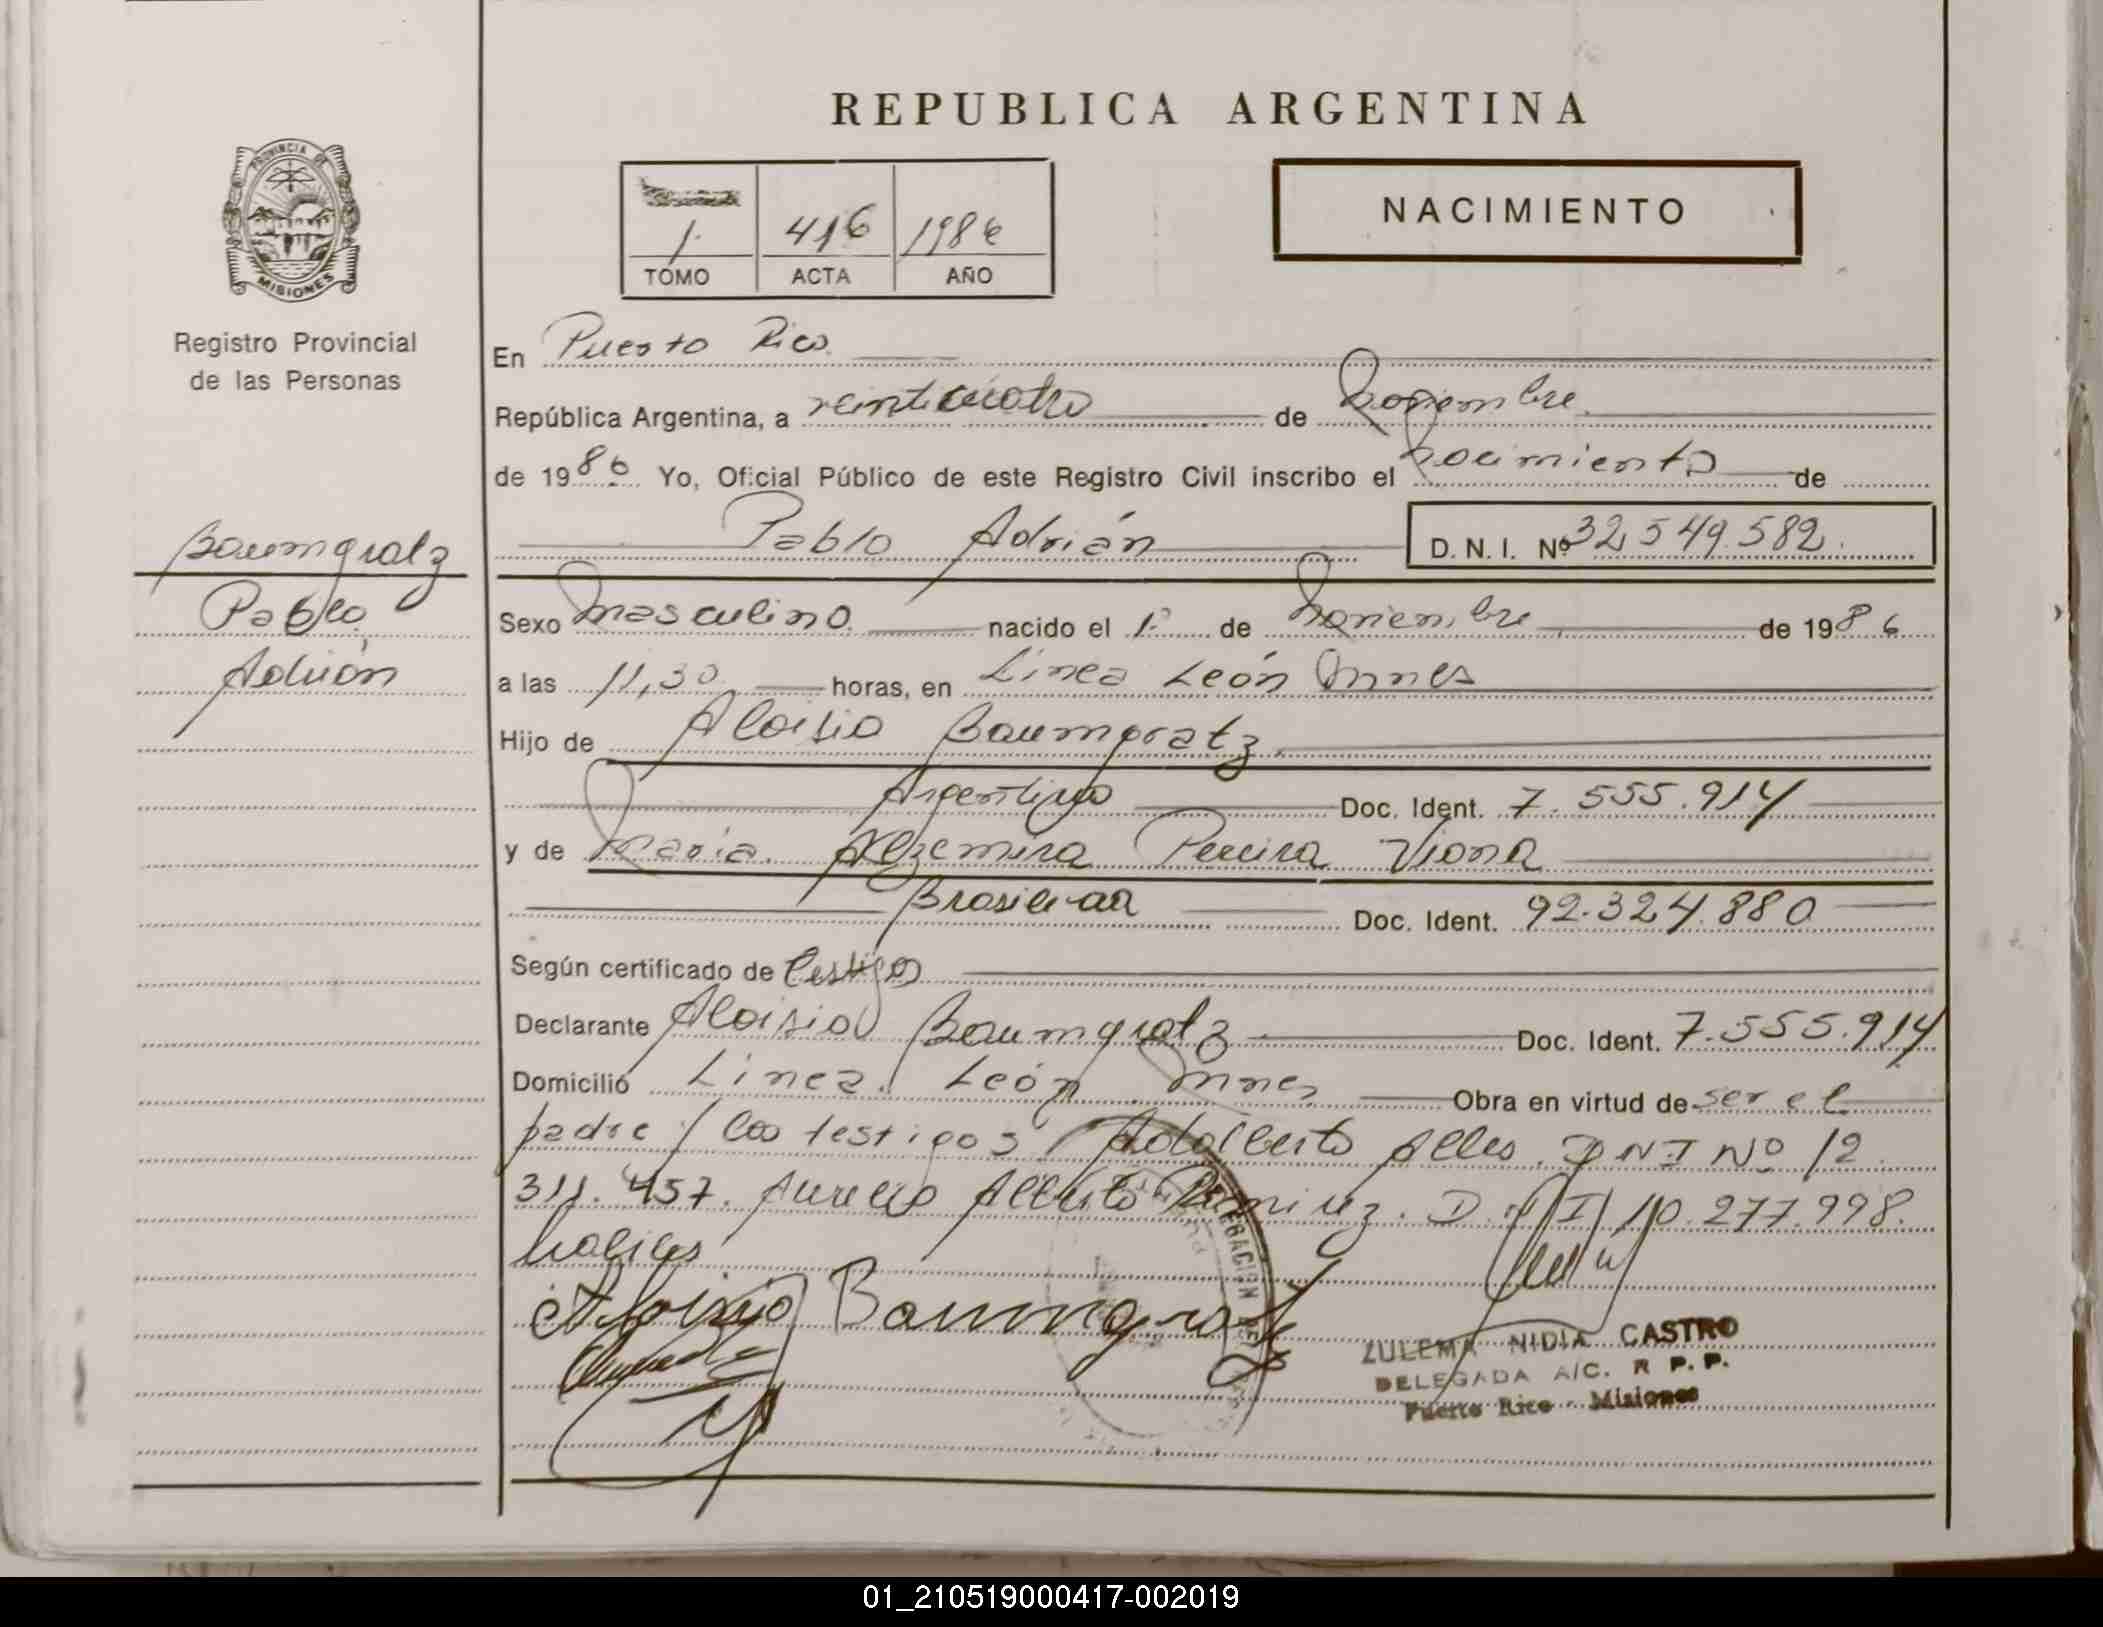 REPUBLICA ARGENTINA
PROVINCIA DE
MISIONES
Registro Provincial
de las Personas
1. 416 1986
TOMO ACTA AÑO
NACIMIENTO
En Puerto Rico
República Argentina, a veinticuatro de noviembre
de 1986 Yo, Oficial Público de este Registro Civil inscribo el nacimiento de
Pablo Adrián D. N. I. Nº 32.549.582.
Baumgratz
Pablo
Adrián
Sexo masculino nacido el 1º de noviembre de 1986
a las 11,30 horas, en Línea León
Hijo de Aloisio Baumgratz
Argentino Doc. Ident. 7.555.914
y de María Alzemira Pereira Viana
Doc. Ident. 92.324.880
Según certificado de testigos
Declarante Aloisio Baumgratz Doc. Ident. 7.555.914
Domicilio Línea León Obra en virtud de ser el
padre / los testigos Adalberto Alles. DNI Nº 12
311.457. Aurelio Alberto D.N.I 10.277.998.
Aloisio Baumgratz
DELEGACION DEL
ZULEMA NIDIA CASTRO
DELEGADA A/C. R P. P.
Puerto Rico - Misiones
01_210519000417-002019